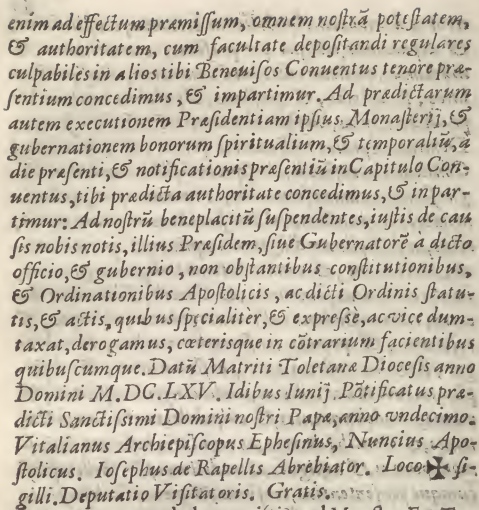 enim ad effectum præmiſſum, omnem noſtrã poteſtatem,
& authoritatem, cum facultate depoſitandi regulares
culpabiles in alios tibi Beneuiſos Conuentus tenore præ-
ſentium concedimus, & impartimur. Ad prædictarum
autem executionem Præſidentiam ipſius Monaſterij, &
gubernationem bonorum ſpiritualium, & temporaliũ, à
die præſenti, & notificationis præſentiũ in Capitulo Con-
uentus, tibi prædicta authoritate concedimus, & inpar-
timur: Ad noſtrũ beneplacitũ ſuſpendentes, iuſtis de cau
ſis nobis notis, illius Præſidem, ſiue Gubernatorẽ a dicto
officio, & gubernio, non obſtantibus conſtitutionibus,
& Ordinationibus Apoſtolicis, ac dicti Ordinis ſtatu-
tis, & actis, quibus ſpecialiter, & expreſsè, ac vice dum-
taxat, derogamus, cœterisque in cõtrarium facientibus
quibuſcumque. Datũ Matriti Toletanæ Diœceſis anno
Domini M.DC.LXV. Idibus Iunij. Põtificatus præ-
dicti Sanctiſsimi Domini noſtri Papæ, anno vndecimo.
Vitalianus Archiepiſcopus Epheſinus, Nuncius Apo-
ſtolicus. Ioſephus de Rapellis Abrebiator. Loco ✠ ſi-
gilli. Deputatio Viſitatoris. Gratis.